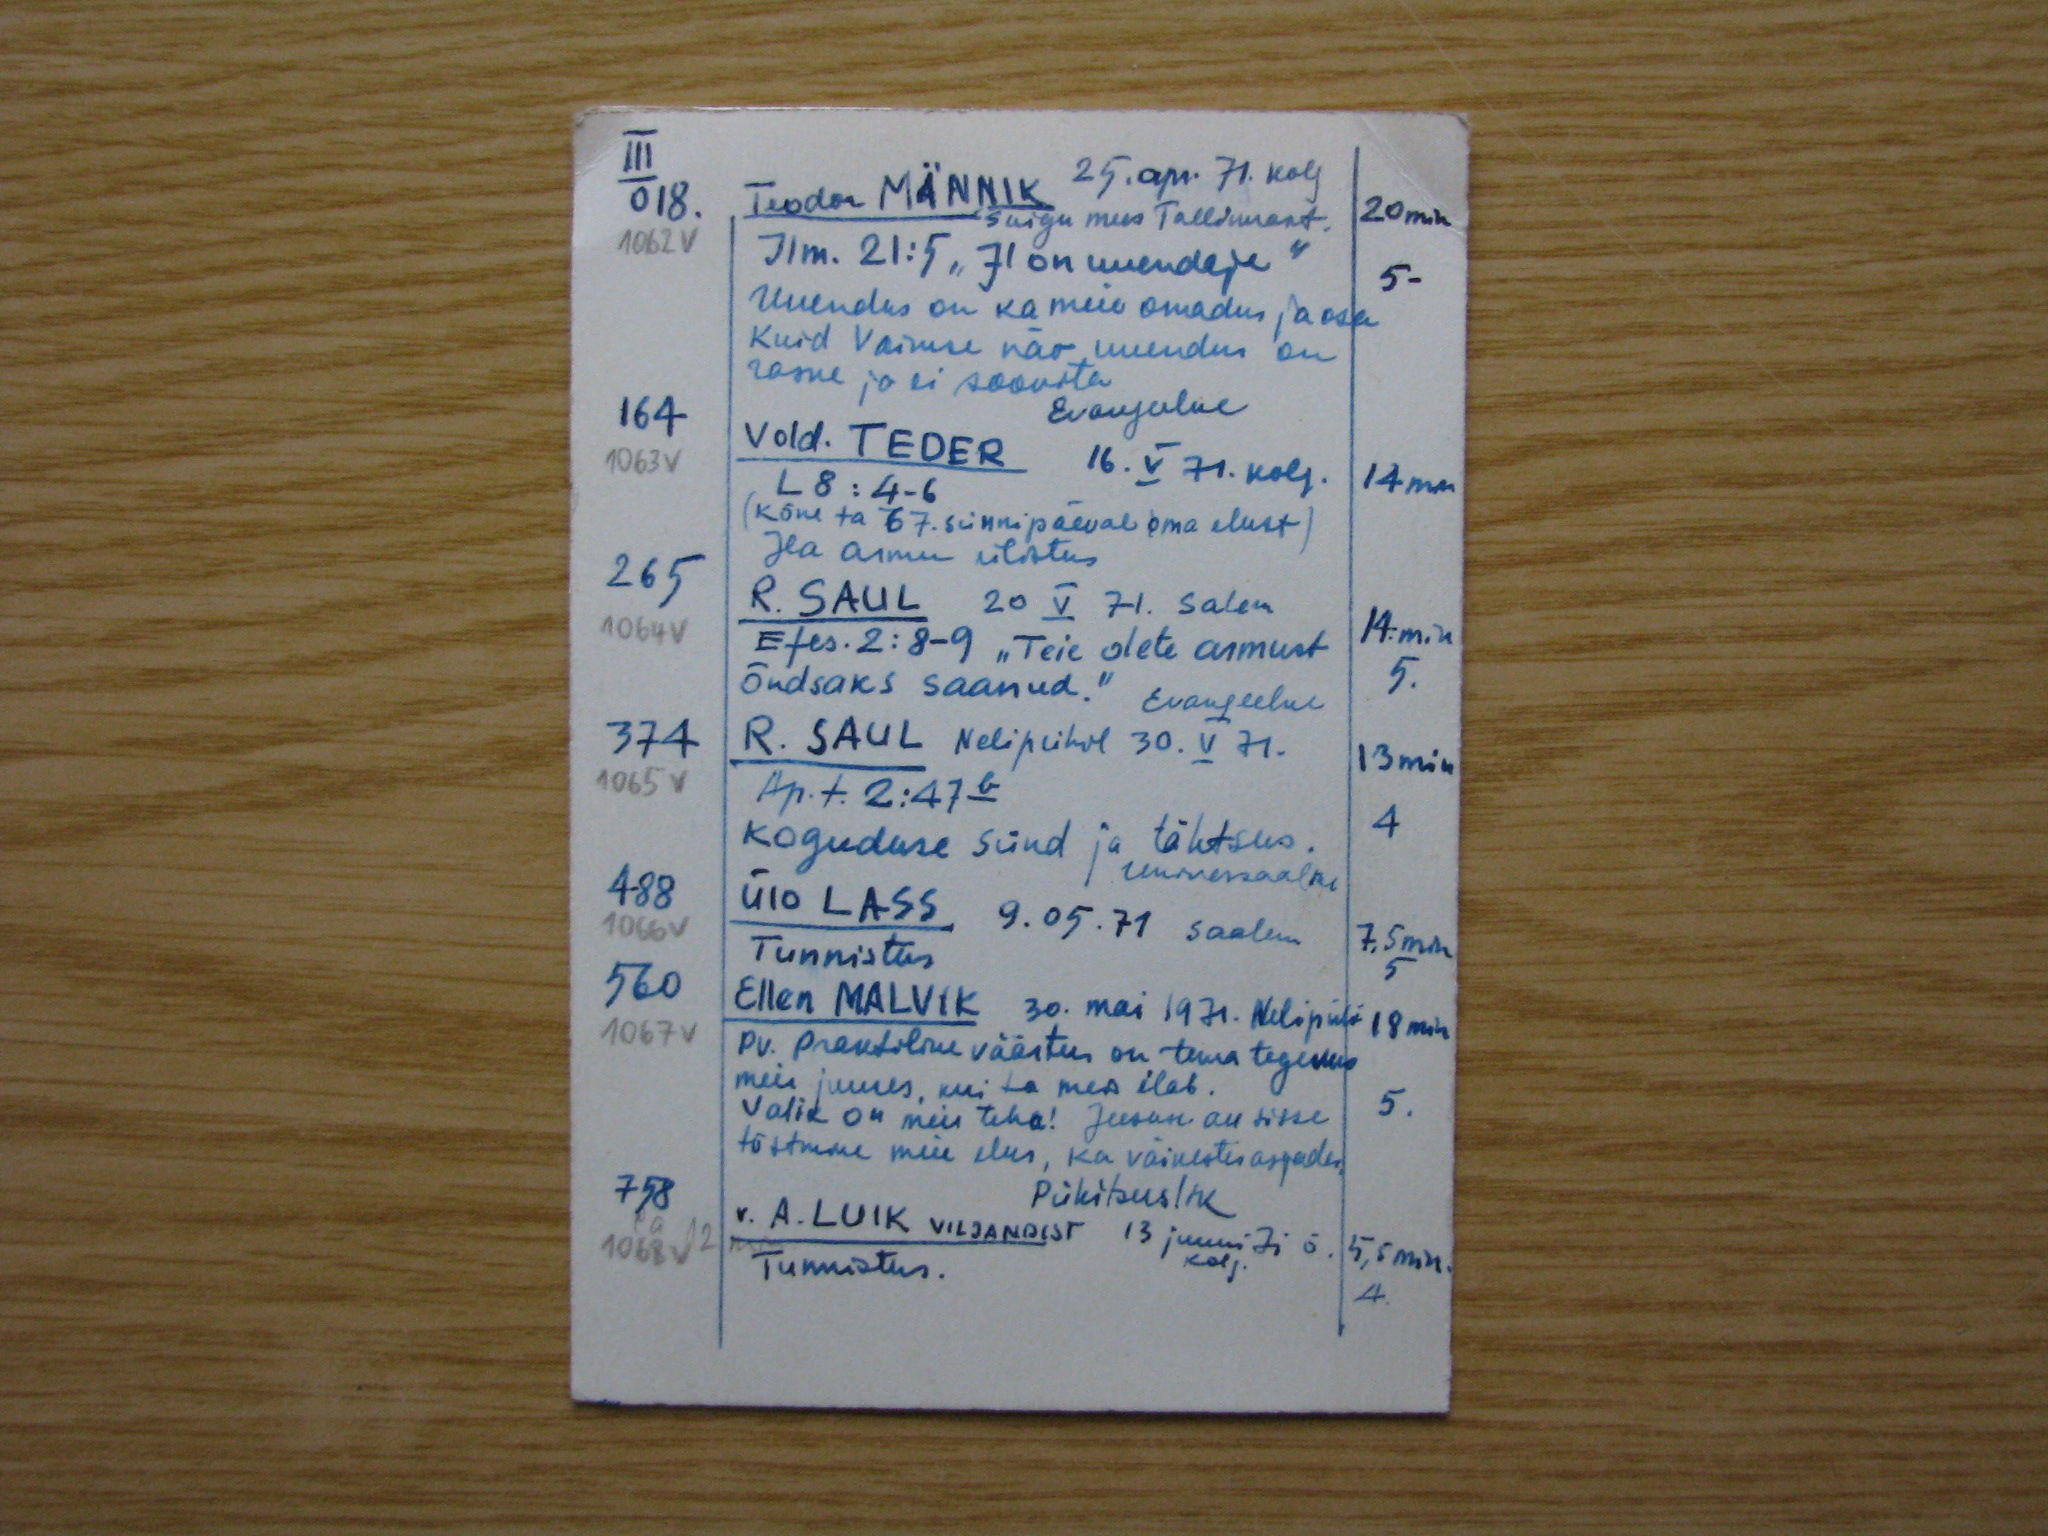 III
018. Teodor MÄNNIK 25. apr. 71. kolg 20 min
1062V mees Tallinnast.
Ilm. 21:5 „JI on uuendaja" 5-
Uuendus on ka meie omadus ja osa
Kuid Vaimse näo uuendus on
raske ja ei soovita
164 Evangeelne
Vold. TEDER 16. V 71. kolg. 14 min
1063V
L 8:4-6
(Kõne ta 67. sünnipäeval oma elust)
Jla armu ülistus
265 R. SAUL 20 V 71. Salem
1064V Efes. 2:8-9 „Teie olete armust 14 min
Õndsaks saanud." 5.
Evangeelne
374 R. SAUL Nelipühil 30. V 71. 13 min
1065V Ap. t. 2:47 b
Koguduse sünd ja tähtsus. 4
Universaalne
488 Ülo LASS 9.05.71 Saalem 7,5 min
1066V Tunnistus 5
560 Ellen MALVIK 30. mai 1971. Nelipühi 18 min
1067V Pv. Praktiline väärtus on tema tegevus
meie juures, kui ta meis elab.
Valik on meie teha! Jeesuse au sisse 5.
tõstmine meie elus, ka väikestes asjades.
758 Pühitsuslik
v. A. LUIK VILJANDIST 13 juuni 71 õ. 5,5 min.
1068V 12 min kolg.
Tunnistus. 4